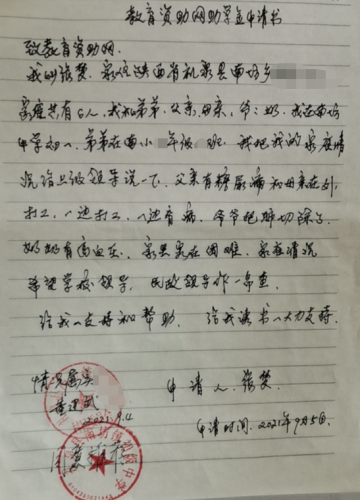 教育资助网助学金申请书
致教育资助网.
我叫张焚, 家住陕西省乾县南坊乡
家庭共有6人, 我和弟弟, 父亲, 母亲, 爷、奶, 我在南坊
中学初一、弟弟在南小 年级 班, 我把我的家庭情
况给上级领导说一下. 父亲有糖尿病和母亲在外
打工, 一边打工, 一边看病, 爷爷把肺切除了
奶奶有高血压、家里实在困难、家庭情况
希望学校领导、民政领导作一审查、
给我一支持和帮助、给我读书一大力支持.
情况属实
申请人. 张
2021.9.4
申请时间. 2021年9月5日.